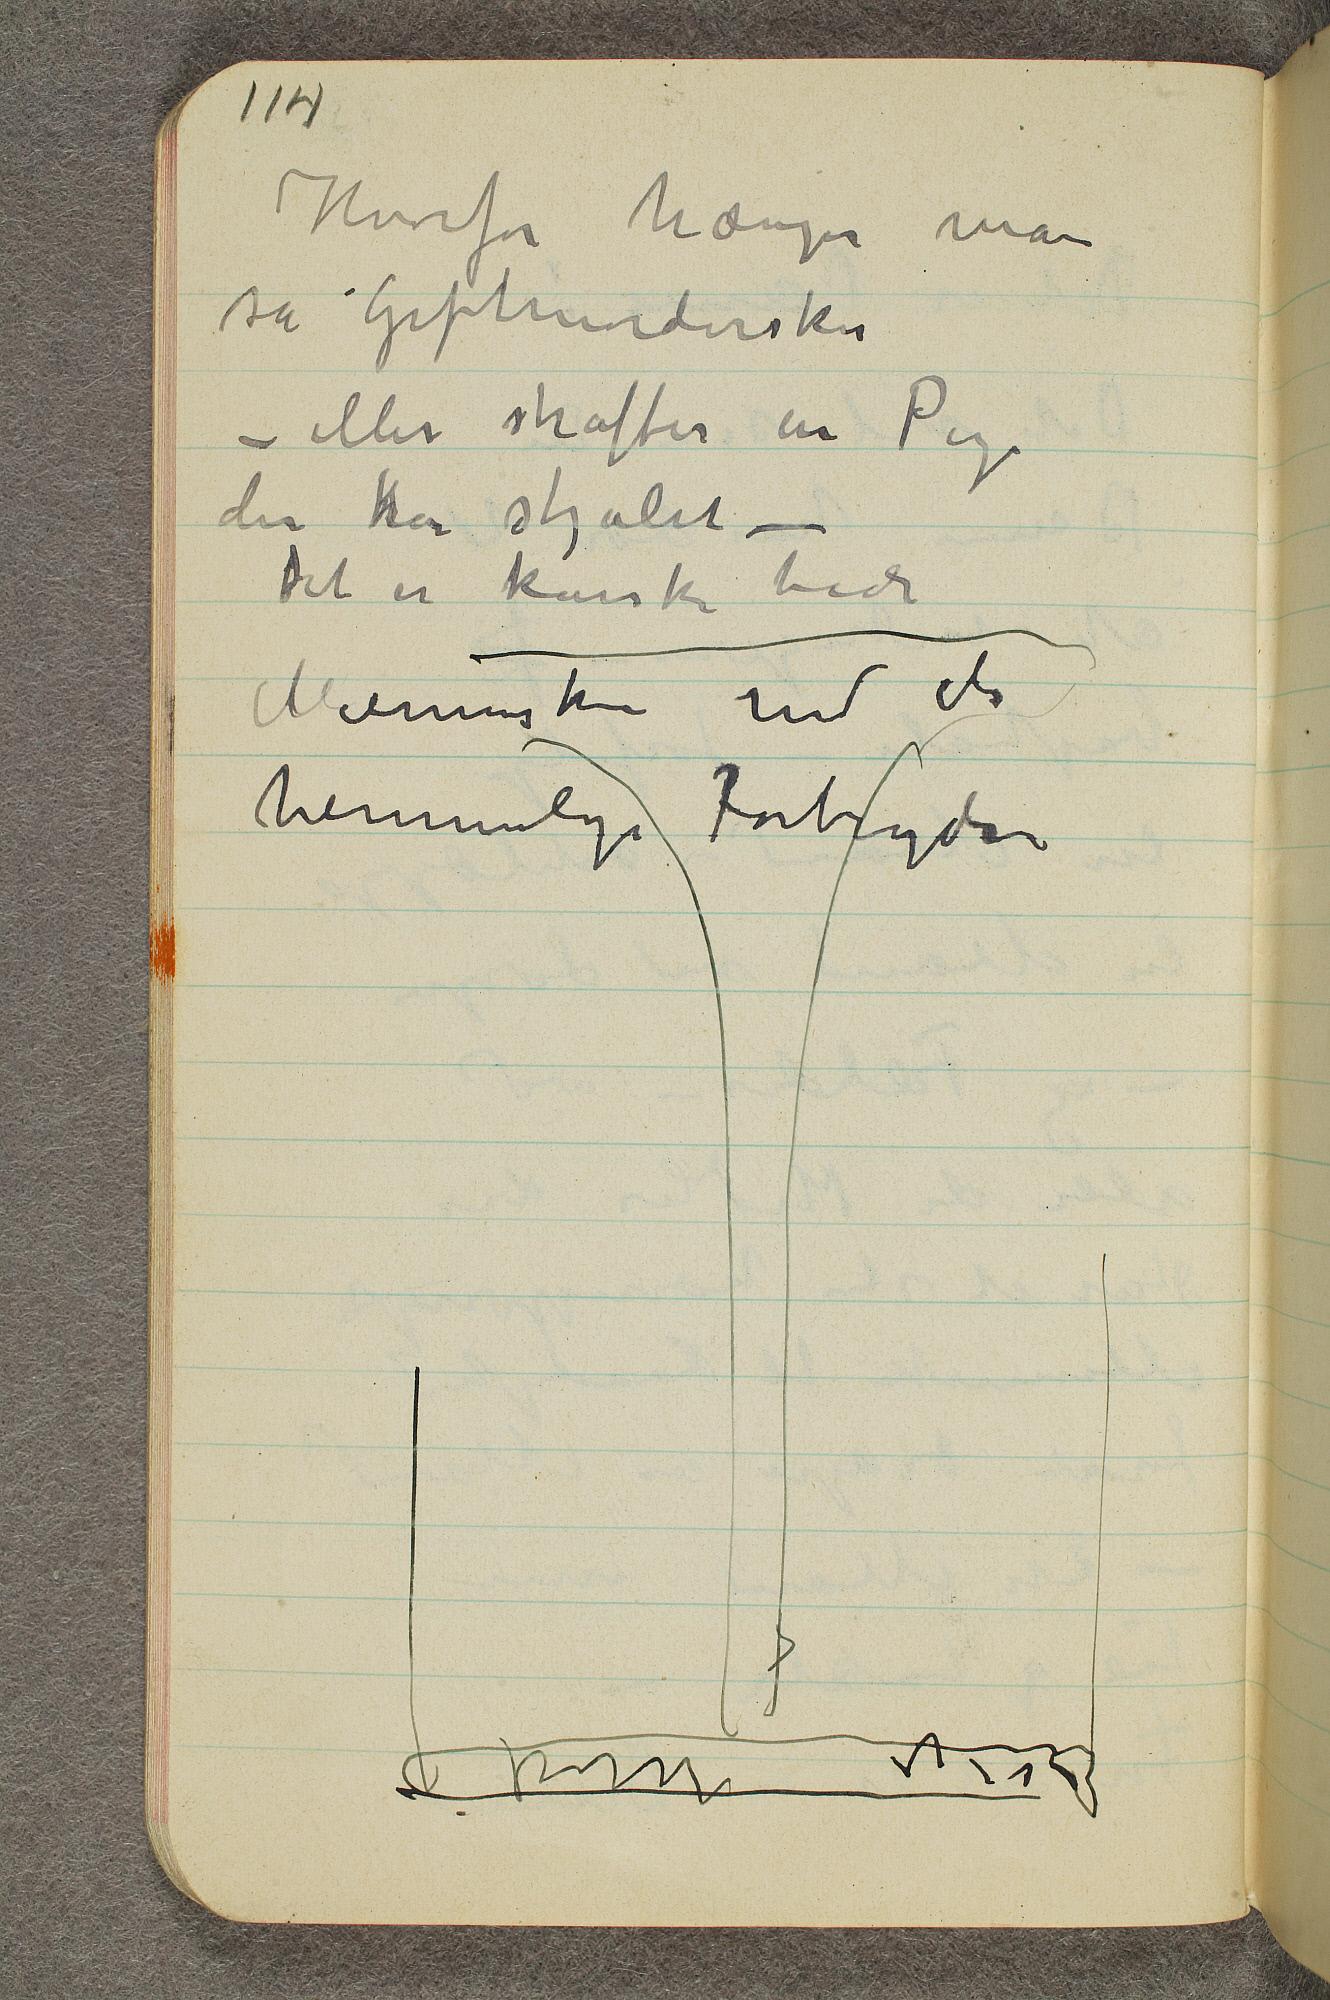 114
Hvorfor hænger man
så Giftmordersker
– eller straffer en Pige
der har stjålet —
Det er kanske både
Mennesker med de
hemmelige Forbrydere